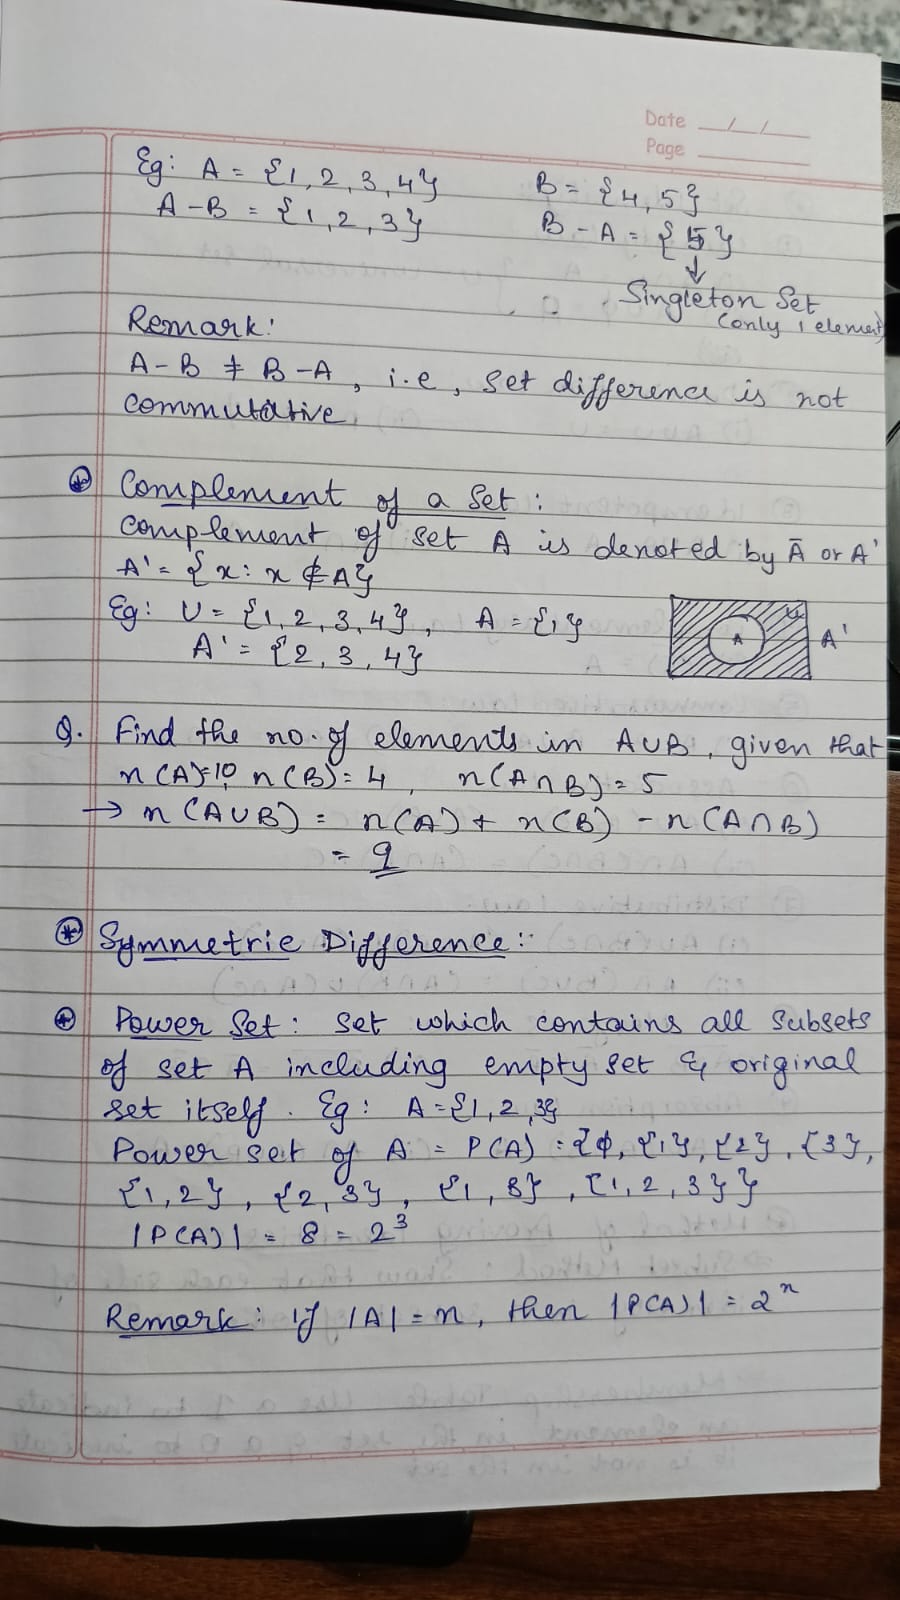 Date __/__/__
Page ____
Eg: A = {1, 2, 3, 4} B = {4, 5}
A - B = {1, 2, 3} B - A = {5}
↓
Singleton Set
(only 1 element)
Remark:
A - B ≠ B - A, i.e, set difference is not
commutative.
Complement of a Set:
Complement of set A is denoted by Ā or A'
A' = {x: x ∉ A}
Eg: U = {1, 2, 3, 4}, A = {1}
A' = {2, 3, 4}
U
A
A'
Q. Find the no. of elements in A∪B, given that
n(A)=10, n(B)= 4, n(A∩B) = 5
→ n(A∪B) = n(A) + n(B) - n(A∩B)
= 9
Symmetric Difference:-
Power Set: Set which contains all subsets
of set A including empty set & original
set itself. Eg: A={1, 2, 3}
Power set of A = P(A) = {ϕ, {1}, {2}, {3},
{1, 2}, {2, 3}, {1, 3}, {1, 2, 3}}
|P(A)| = 8 = 2³
Remark: If |A| = n, then |P(A)| = 2ⁿ